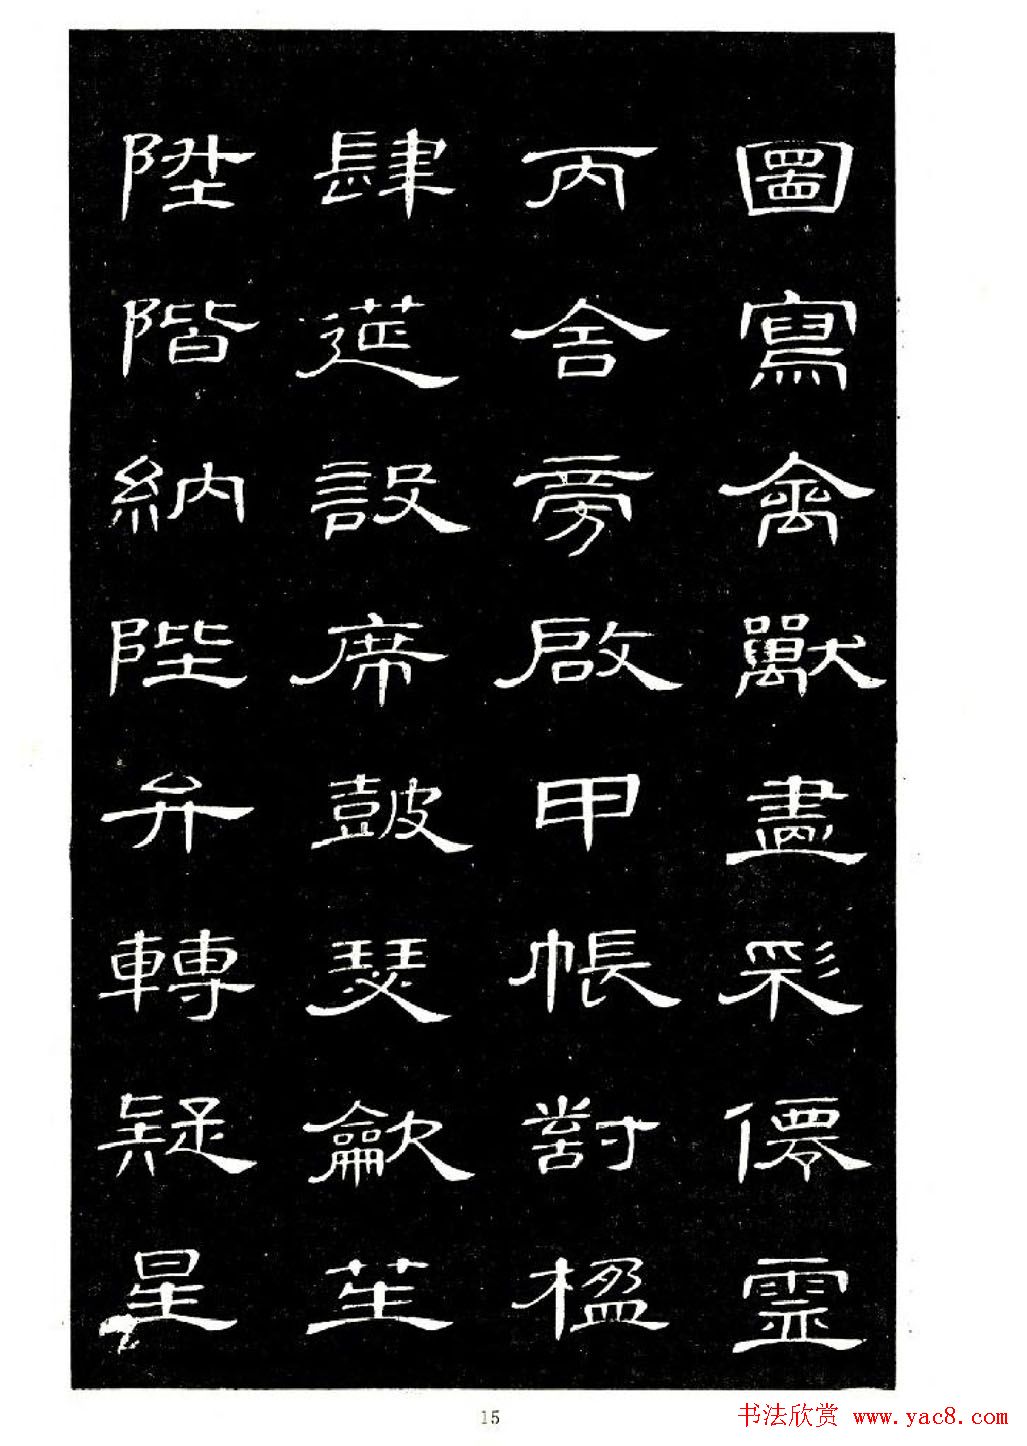 圖寫禽獸畫彩僊靈
丙舍旁啟甲帳對楹
肆莚設席鼓瑟歈笙
陞階納陛弁轉疑星
15
书法欣赏 www.yac8.com